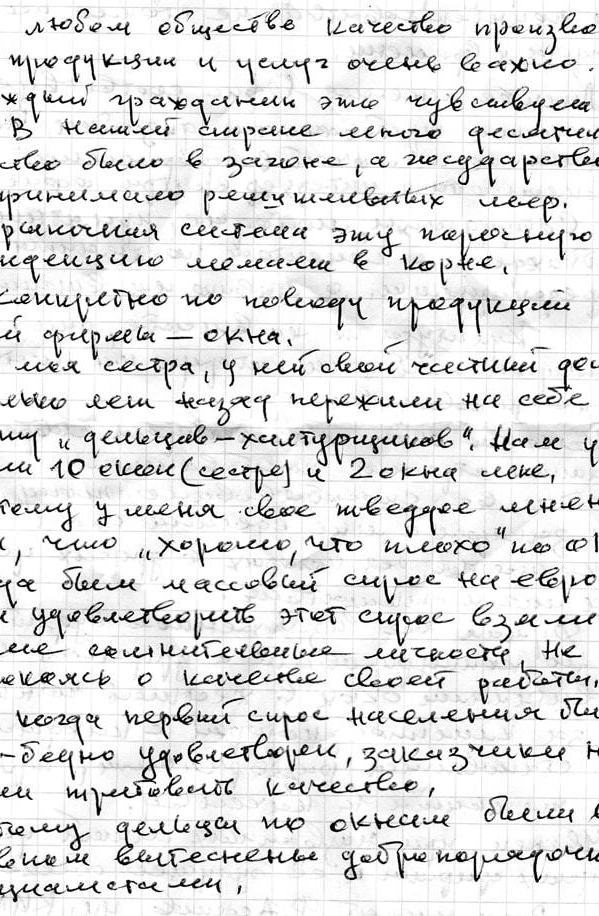 любом обществе качество произво
продукции и услуг очень важно.
ждый гражданин это чувствует
В нашей стране много десятил
ство было в загоне, а государство
принимало решительных мер.
рыночная система эту порочную
нденцию ломает в корне.
конкретно по поводу продукции
й фирмы — окна.
моя сестра, у ней свой частный до
лько лет назад пережили на себе
ту „дельцов-халтурщиков". Нам у
ли 10 окон (сестре) и 2 окна мне,
тому у меня свое твердое мнен
, что „хорошо, что плохо" по ок
да был массовый спрос на евро
и удовлетворить этот спрос взяли
ие сомнительные личности, не
окоясь о качестве своей работы.
когда первый спрос населения бы
-бедно удовлетворен, заказчики н
ли требовать качество,
тому дельцы по окнам были в
вном вытеснены добропорядочн
циалистами.